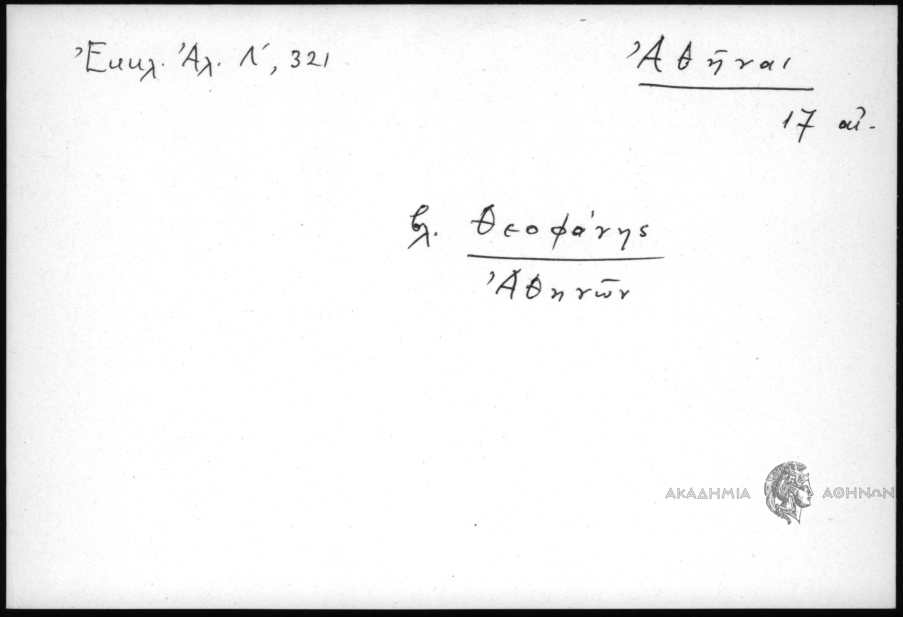 Ἐκκλ. Ἀλ. Λ´, 321
Ἀθῆναι
17 αἰ.
βλ. Θεοφάνης
Ἀθηνῶν
ΑΚΑΔΗΜΙΑ ΑΘΗΝΩΝ